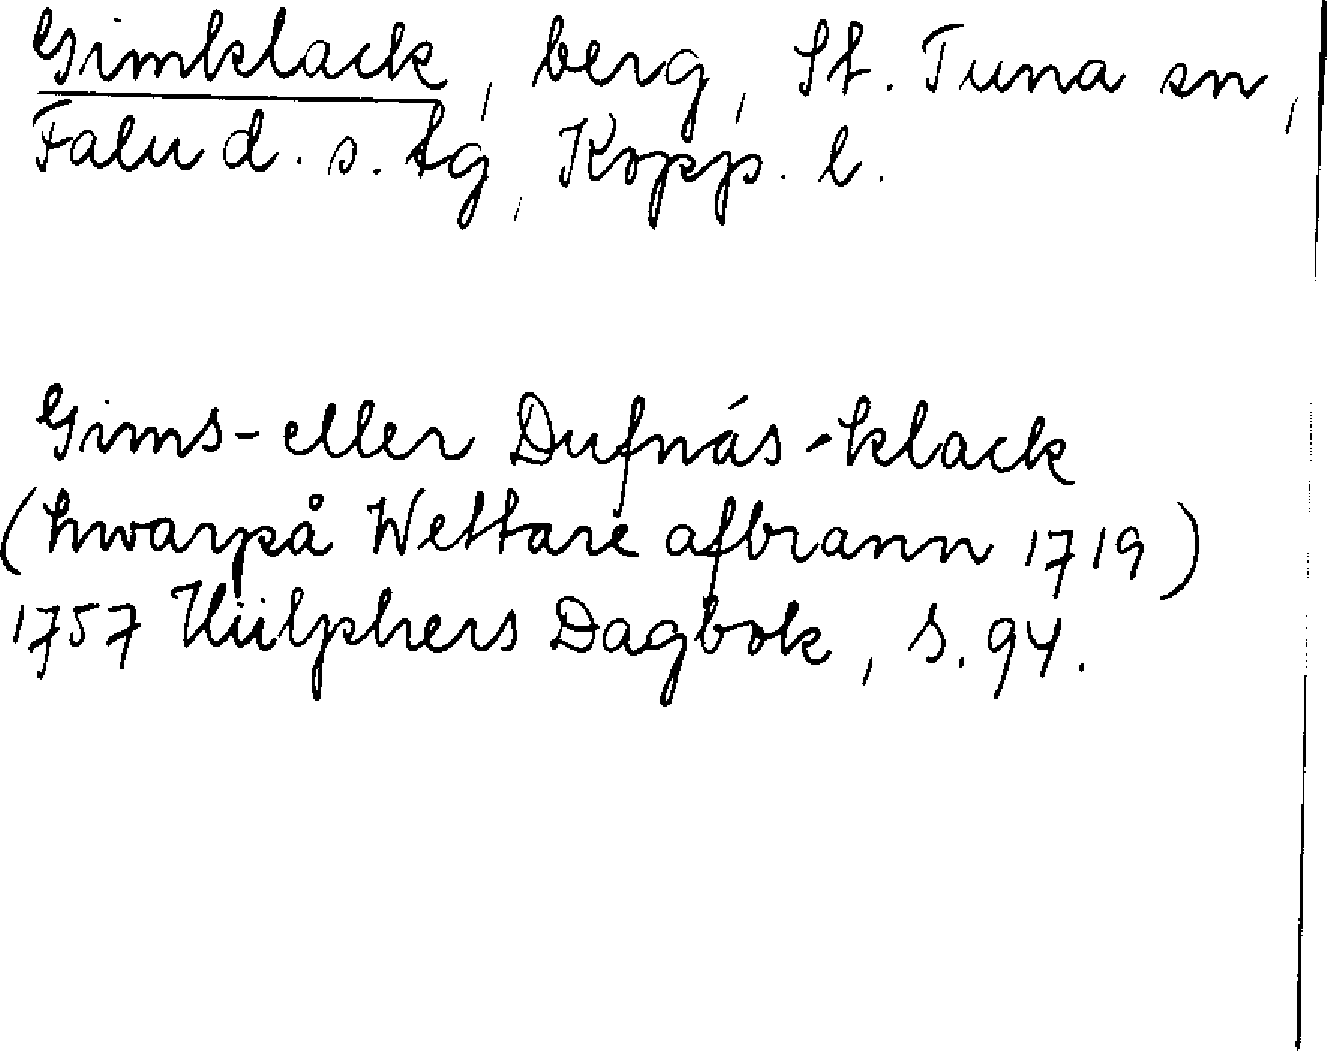 Gimklack, berg, St. Tuna sn,
Falu d. s. tg, Kopp. l.
Gims- eller Dufnás-klack
(hwarpå Wettare afbrann 1719)
1757 Hülphers Dagbok, s. 94.